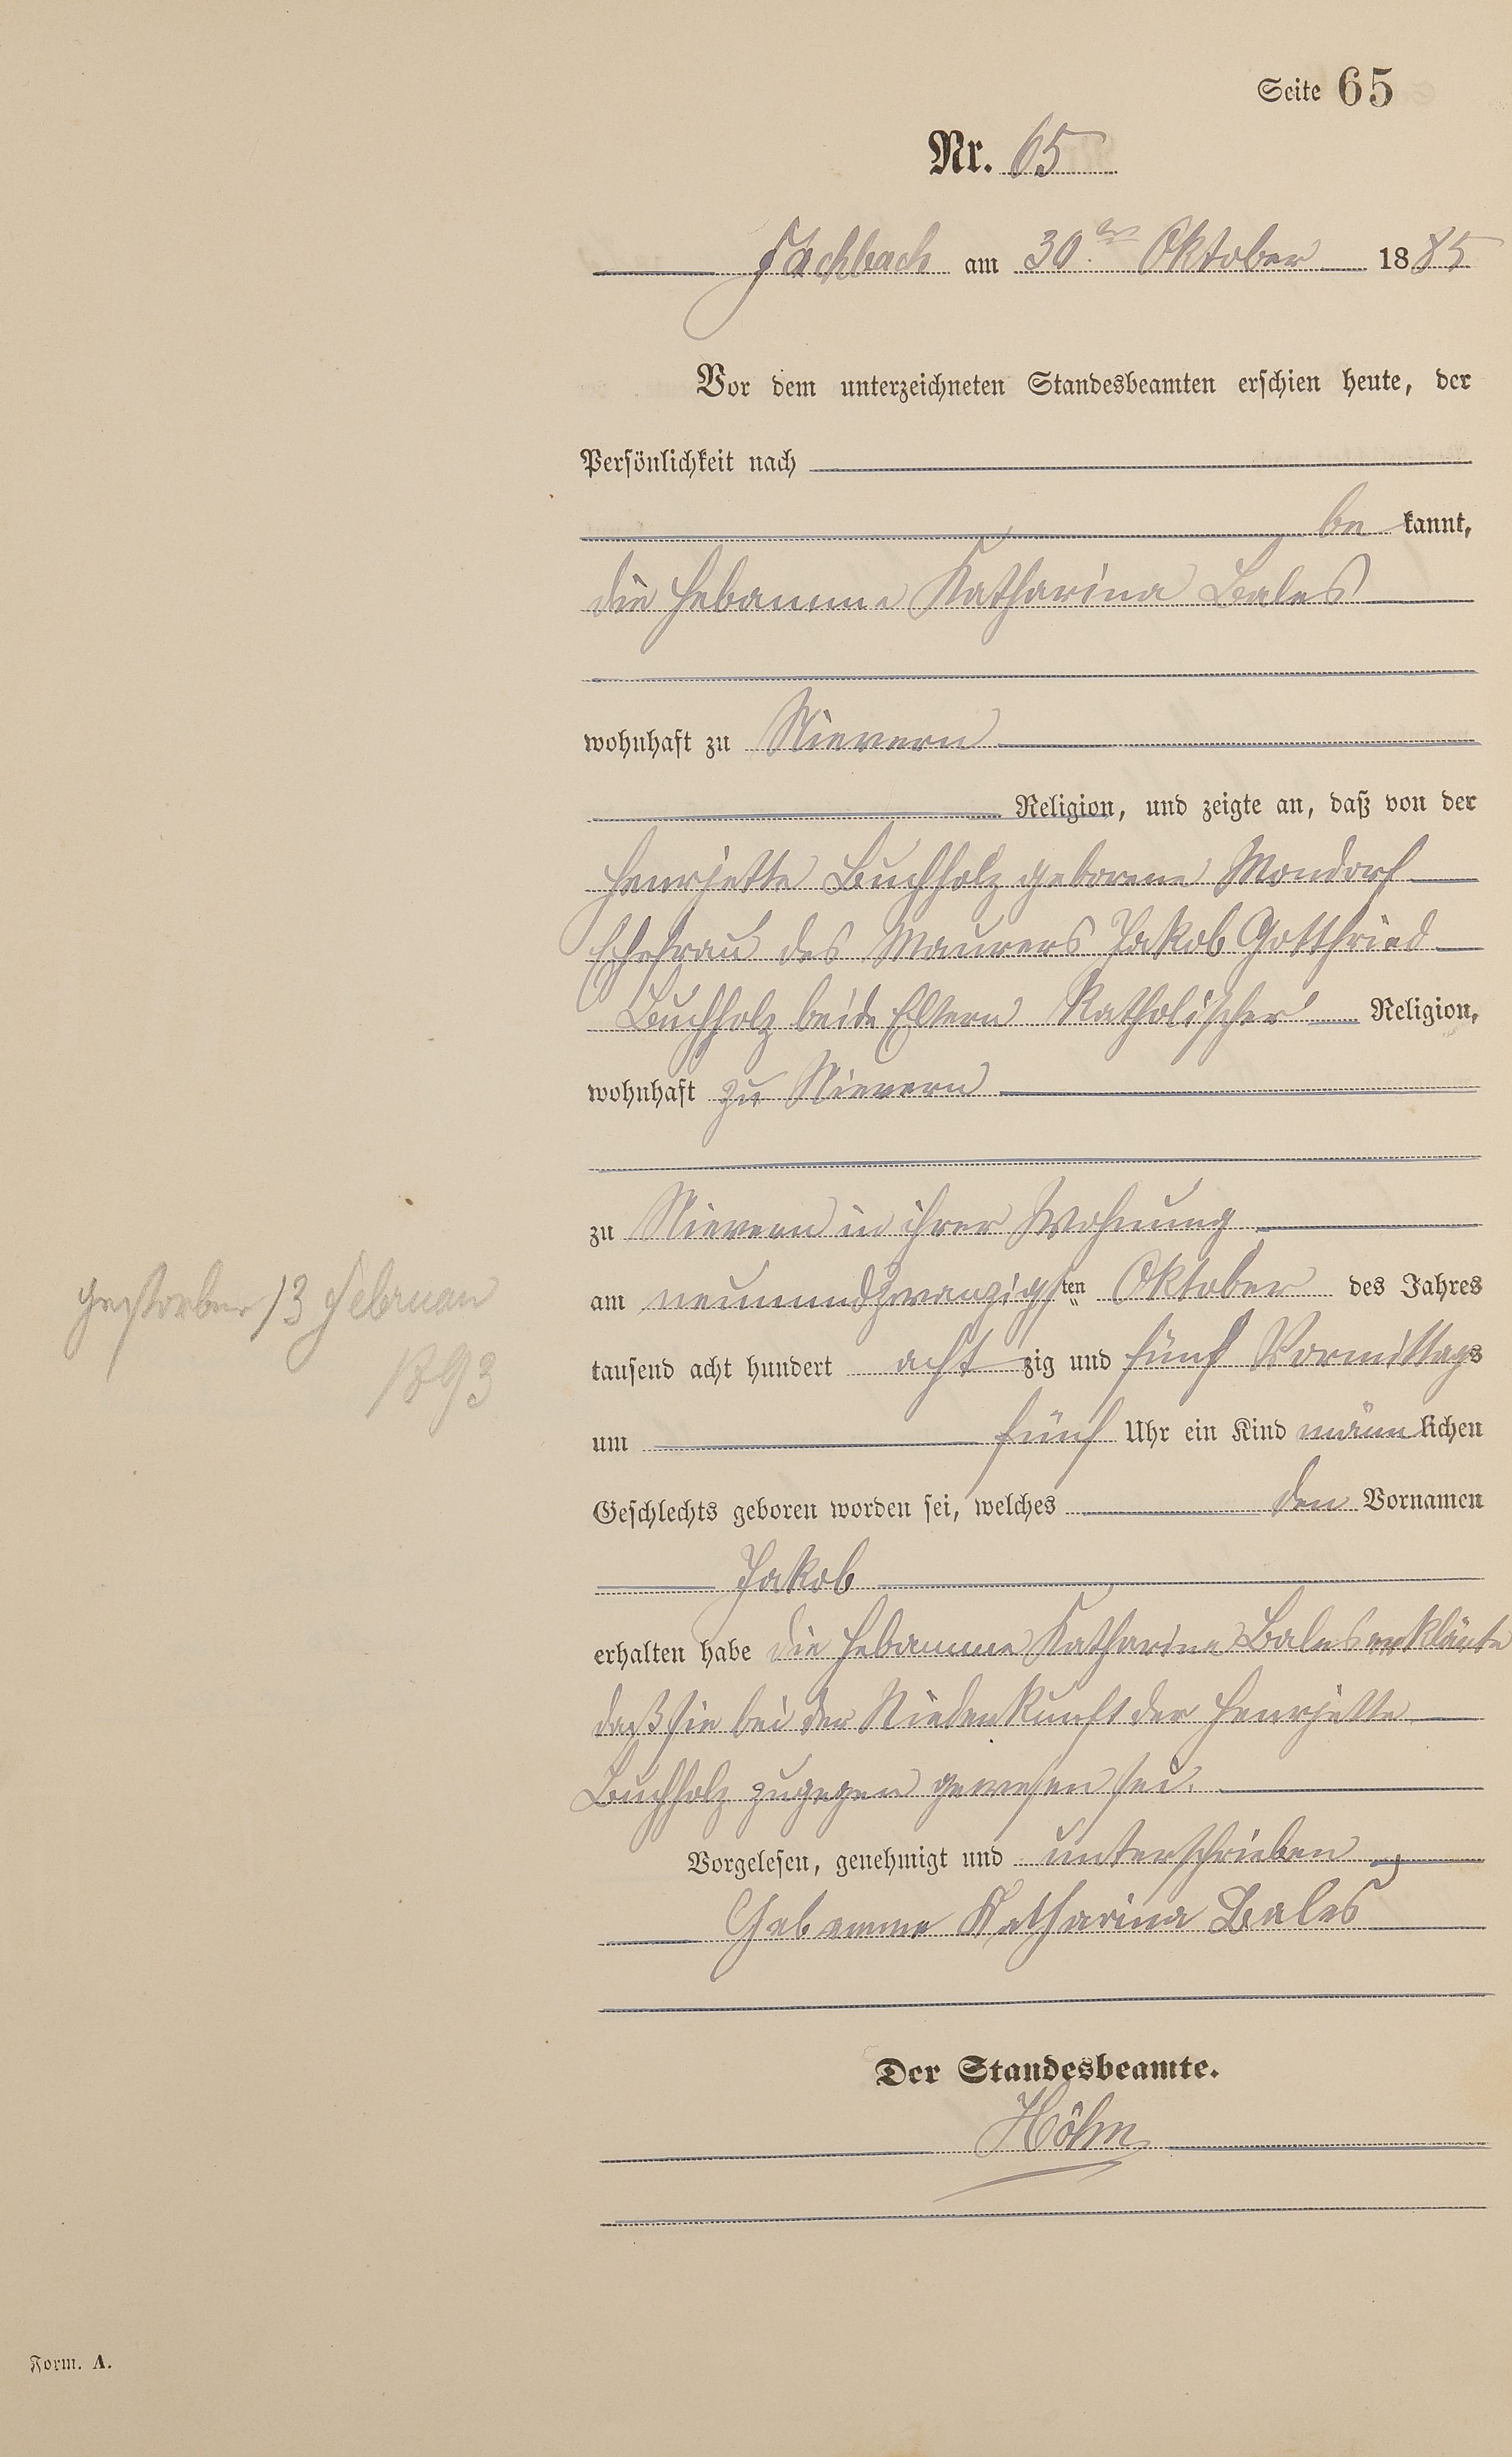 Seite 65
Nr. 65
Fachbach am 30ten Oktober 1885
Vor dem unterzeichneten Standesbeamten erschien heute, der
Persönlichkeit nach
be kannt,
die Hebamme Katharina Bales
wohnhaft zu Nievern
Religion, und zeigte an, daß von der
Henrjette Buchholz geborene Mondorf
Ehefrau des Maurers Jakob Gottfried
Buchholz beide Eltern Katholischer Religion,
wohnhaft zu Nievern
zu Nievern in ihrer Wohnung
am neunundzwanzigsten Oktober des Jahres
tausend acht hundert acht zig und fünf Vormittags
um fünf Uhr ein Kind männ lichen
Geschlechts geboren worden sei, welches den Vornamen
Jakob
erhalten habe die Hebamme Katharina Bales erklärte
daß sie bei der Niederkunft der Henrjette
Buchholz zugegen gewesen sei.
Vorgelesen, genehmigt und unterschrieben
Hebamme Katharina Bales
Der Standesbeamte.
Höhn
gestorben 13 Februar
1893
Form. A.